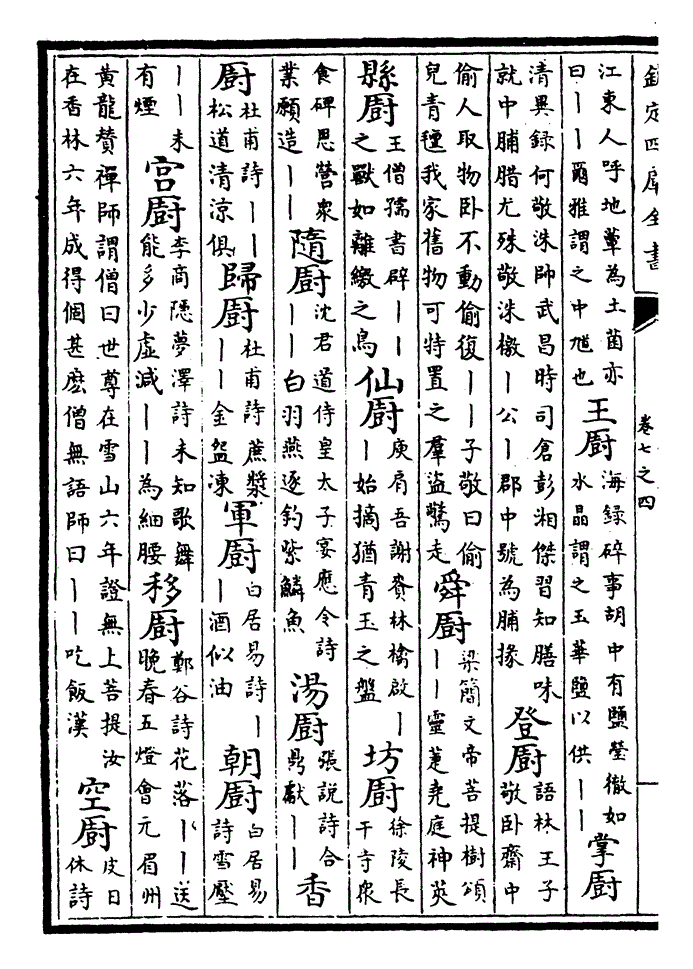 欽定四庫全書
卷七之四
江東人呼地蕈為土菌亦
曰丨丨爾雅謂之中馗也
王厨
海録碎事胡中有鹽瑩徹如
水晶謂之玉華鹽以供丨丨
掌厨
清異録何敬洙帥武昌時司倉彭湘傑習知膳味
就中脯腊尤殊敬洙檄丨公丨郡中號為脯掾
登厨
語林王子
敬卧齋中
偷人取物卧不動偷復丨丨子敬曰偷
兒青氊我家舊物可特置之羣盜驚走
舜厨
梁簡文帝菩提樹頌
丨丨靈萐堯庭神英
縣厨
王僧孺書辟丨丨
之獸如離繳之鳥
仙厨
庾肩吾謝賚林檎啟丨
丨始摘猶青玉之盤
坊厨
徐陵長
干寺衆
食碑思營衆
業願造丨丨
隨厨
沈君道侍皇太子宴應令詩
丨丨白羽燕逐釣紫鱗魚
湯厨
張説詩合
鼎獻丨丨
香
厨
杜甫詩丨丨
松道清涼俱
歸厨
杜甫詩蔗漿
丨丨金盌凍
軍厨
白居易詩丨
丨酒似油
朝厨
白居易
詩雪壓
丨丨未
有煙
宫厨
李商隱夢澤詩未知歌舞
能多少虛減丨丨為細腰
移厨
鄭谷詩花落丨丨送
晚春五燈會元眉州
黃龍贊禪師謂僧曰世尊在雪山六年證無上菩提汝
在香林六年成得個甚麽僧無語師曰丨丨吃飯漢
空厨
皮日
休詩